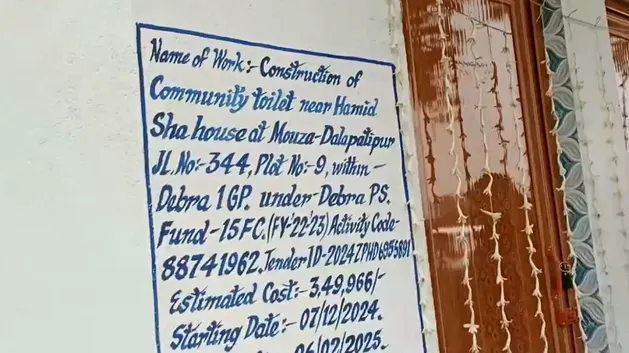 Name of Work:- Construction of
Community toilet near Hamid
Sha house at Mouza-Dalapatipur
JL. No:-344, Plot No:-9, within-
Debra 1 GP. under-Debra PS.
Fund-15 FC. (FY-'22-'23) Activity Code-
88741962. Tender ID-2024ZPHD6955891
Estimated Cost:- 3,49,966/-
Starting Date:- 07/12/2024.
06/02/2025.